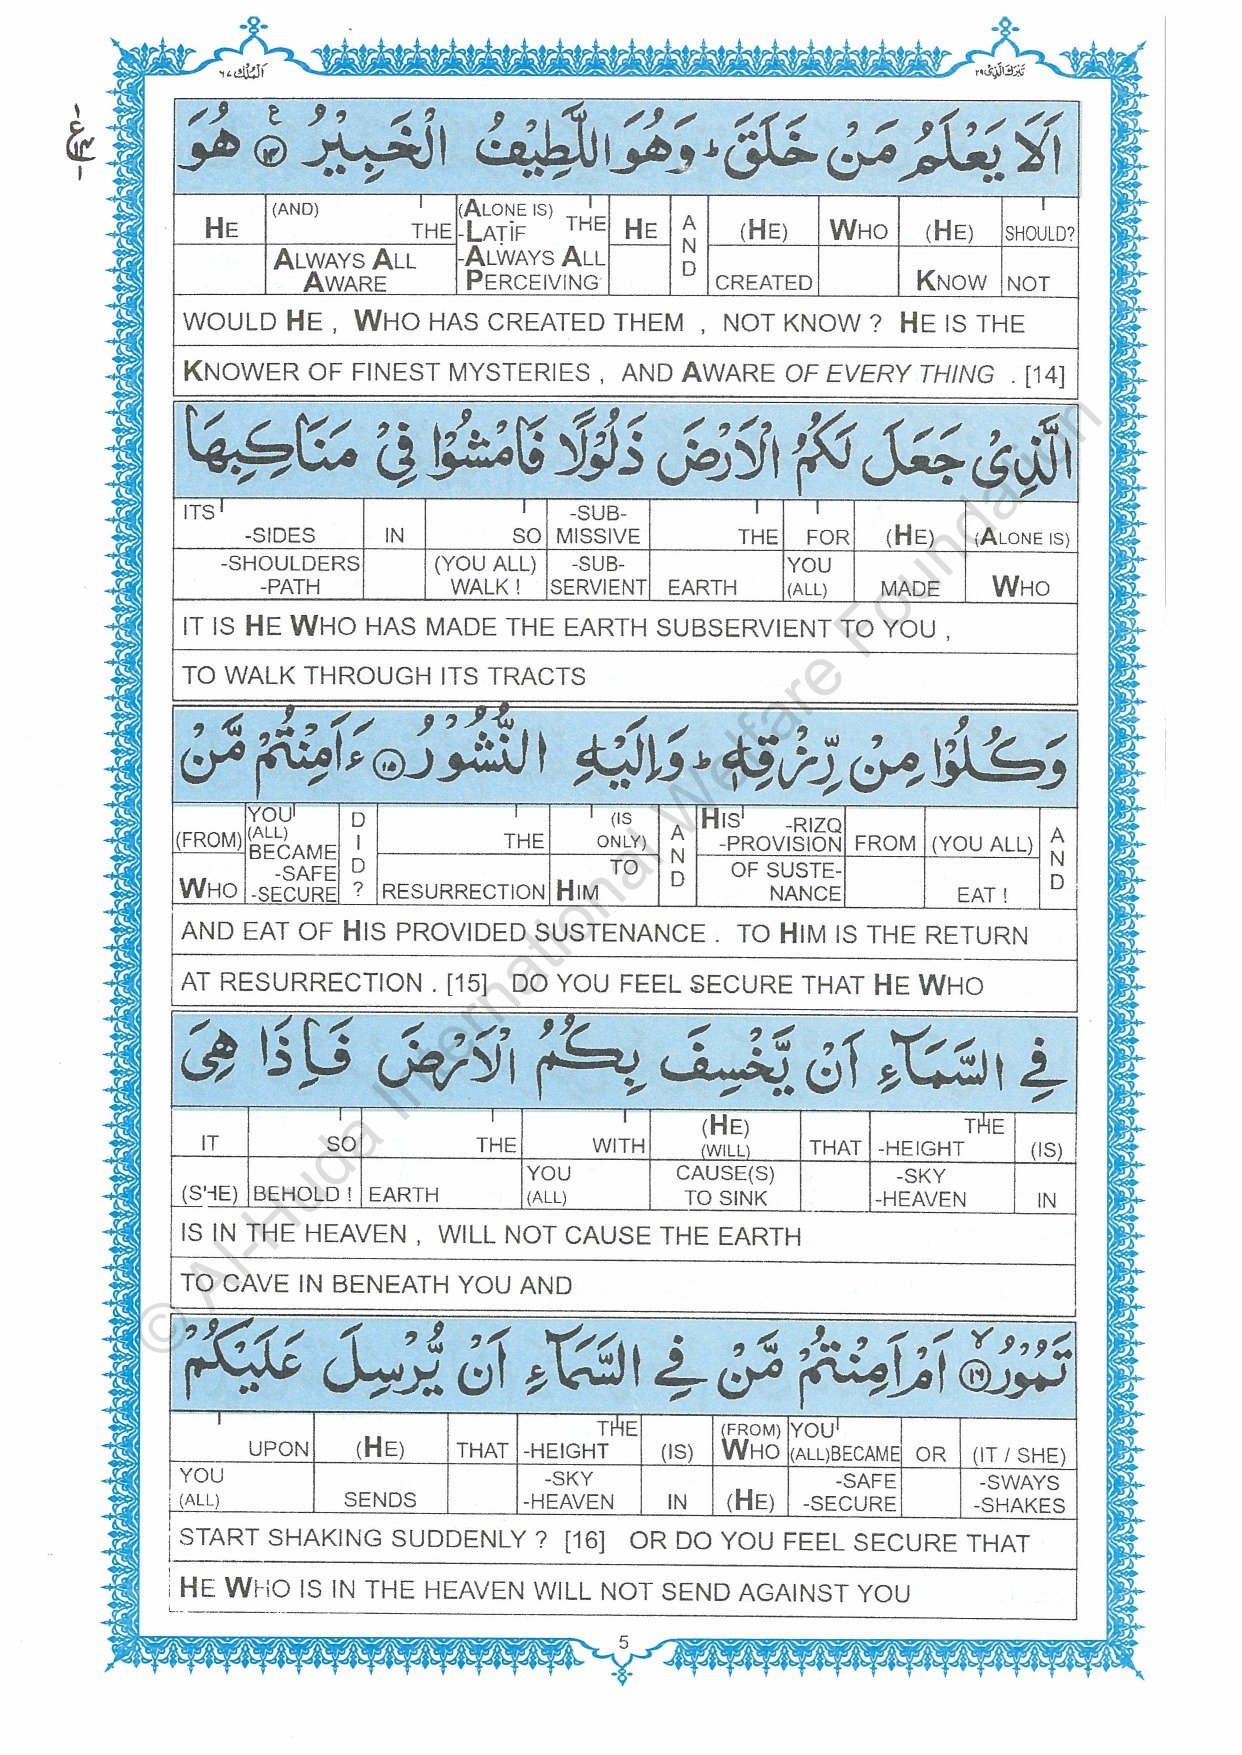 الملك ٦٧
تبرك الذى ٢٩
اَلَا يَعْلَمُ مَنْ خَلَقَ ؕ وَهُوَ اللَّطِيْفُ الْخَبِيْرُ ۝١٤ هُوَ
HE (AND) THE (ALONE IS) THE HE AND (HE) WHO (HE) SHOULD?
-LAṬIF
ALWAYS ALL AWARE -ALWAYS ALL PERCEIVING CREATED KNOW NOT
WOULD HE , WHO HAS CREATED THEM , NOT KNOW ? HE IS THE
KNOWER OF FINEST MYSTERIES , AND AWARE OF EVERY THING . [14]
الَّذِىْ جَعَلَ لَكُمُ الْاَرْضَ ذَلُوْلًا فَامْشُوْا فِىْ مَنَاكِبِهَا
ITS -SIDES IN SO -SUB-MISSIVE THE FOR (HE) (ALONE IS)
-SHOULDERS -PATH (YOU ALL) WALK ! -SUB-SERVIENT EARTH YOU (ALL) MADE WHO
IT IS HE WHO HAS MADE THE EARTH SUBSERVIENT TO YOU ,
TO WALK THROUGH ITS TRACTS
وَكُلُوْا مِنْ رِّزْقِهٖ ؕ وَاِلَيْهِ النُّشُوْرُ ۝١٥ ءَاَمِنْتُمْ مَّنْ
(FROM) YOU (ALL) BECAME DID? THE (IS ONLY) AND HIS -RIZQ -PROVISION FROM (YOU ALL) AND
WHO -SAFE -SECURE RESURRECTION TO HIM OF SUSTE-NANCE EAT !
AND EAT OF HIS PROVIDED SUSTENANCE . TO HIM IS THE RETURN
AT RESURRECTION . [15] DO YOU FEEL SECURE THAT HE WHO
فِى السَّمَآءِ اَنْ يَّخْسِفَ بِكُمُ الْاَرْضَ فَاِذَا هِىَ
IT SO THE WITH (HE) (WILL) THAT THE -HEIGHT (IS)
(SHE) BEHOLD ! EARTH YOU (ALL) CAUSE(S) TO SINK -SKY -HEAVEN IN
IS IN THE HEAVEN , WILL NOT CAUSE THE EARTH
TO CAVE IN BENEATH YOU AND
تَمُوْرُ ۝١٦ اَمْ اَمِنْتُمْ مَّنْ فِى السَّمَآءِ اَنْ يُّرْسِلَ عَلَيْكُمْ
UPON (HE) THAT THE -HEIGHT (IS) (FROM) WHO YOU (ALL)BECAME OR (IT / SHE)
YOU (ALL) SENDS -SKY -HEAVEN IN (HE) -SAFE -SECURE -SWAYS -SHAKES
START SHAKING SUDDENLY ? [16] OR DO YOU FEEL SECURE THAT
HE WHO IS IN THE HEAVEN WILL NOT SEND AGAINST YOU
5
© Al-Huda International Welfare Foundation